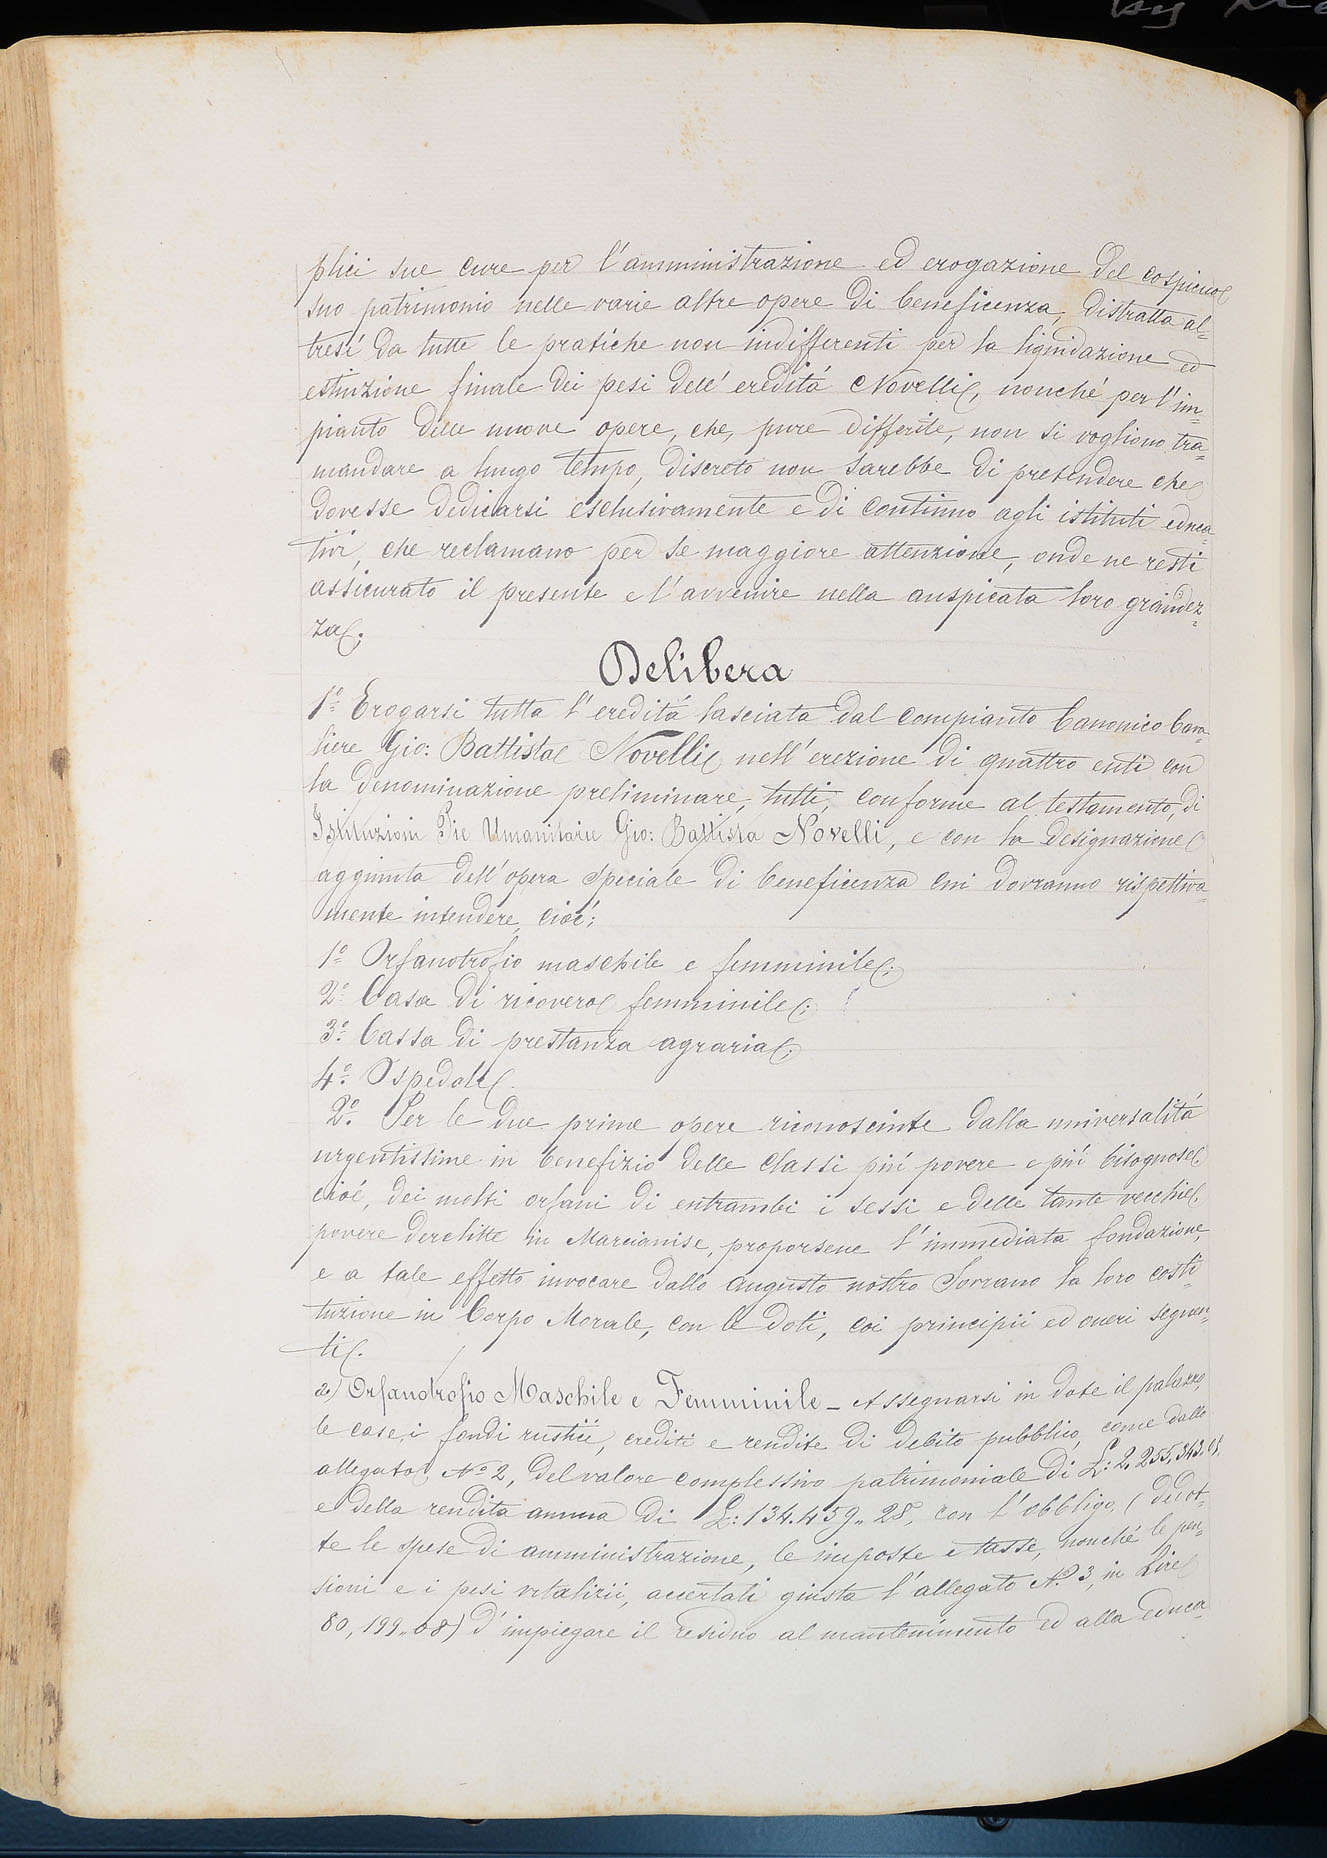 plici sue cure per l'amministrazione ed erogazione del cospicuo
suo patrimonio nelle varie altre opere di beneficenza, distratta al-
tresí da tutte le pratiche non indifferenti per la liquidazione ed
estinzione finale dei pesi dell'ereditá Novelli, nonché per l'im-
pianto delle nuove opere, che, pure differite, non si vogliono tra-
mandare a lungo tempo, discreto non sarebbe di pretendere che
dovesse dedicarsi esclusivamente e di continuo agli istituti educa-
tivi, che reclamano per se maggiore attenzione, onde ne resti
assicurato il presente e l'avvenire nella auspicata loro grandez-
za.
Delibera
1º Erogarsi tutta l'ereditá lasciata dal compianto Canonico Cava-
liere Gio: Battista Novelli nell'erezione di quattro enti con
la denominazione preliminare, tutti, conforme al testamento, di
Istituzioni Pie Umanitarie Gio: Battista Novelli, e con la designazione
aggiunta dell'opera speciale di beneficenza cui dovranno rispettiva-
mente intendere, cioé:
1º Orfanotrofio maschile e femminile;
2º Casa di ricovero femminile;
3º Cassa di prestanza agraria;
4º Ospedale
2º. Per le due prime opere riconosciute dalla universalitá
urgentissime in benefizio delle classi piú povere e piú bisognose
cioé, dei molti orfani di entrambi i sessi e delle tante vecchie
povere derelitte in Marcianise, proporsene l'immediata fondazione,
e a tale effetto invocare dallo augusto nostro Sovrano la loro costi-
tuzione in Corpo Morale, con le doti, coi principii ed oneri seguen-
ti.
a) Orfanotrofio Maschile e Femminile - Assegnarsi in dote il palazzo,
le case, i fondi rustici, crediti e rendite di debito pubblico, come dallo
allegato Nº 2, del valore complessivo patrimoniale di L: 2.255,343.
e della rendita annua di L: 134.459„28, con l'obbligo, (dedot-
te le spese di amministrazione, le imposte e tasse, nonché le pen-
sioni e i pesi vitalizii, accertati giusta l'allegato Nº 3, in Lire
80,199„08) d'impiegare il residuo al mantenimento ed alla educa-